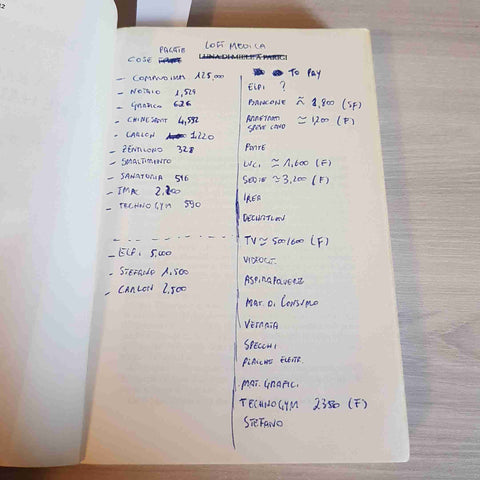 COSE PAGATE
LOFT MEDICA
LUNA DI MIELE A PARIGI
- COMPENDIUM 125,000
- NOTAIO 1,529
- GRAFICA 626
- 4,592
- CARLON 1,220
- ZENTILOMO 328
- SMALTIMENTO
- SANATORIA 516
- IMAC
- TECHNOGYM 590
- ELFI 5,000
- STEFANO 1,500
- CARLON 2,500
TO PAY
ELFI ?
BANCONE ≈ 1,800 (SF)
≈ 1200 (F)
LUCI ≈ 1,600 (F)
SEDIE ≈ 3,200 (F)
IKEA
DECHATLON
TV ≈ 500/600 (F)
VIDEOCIT.
ASPIRAPOLVERE
MAT. DI CONSUMO
VETRATA
SPECCHI
PLACCHE ELETTR.
MAT. GRAFICI
TECHNOGYM 2350 (F)
STEFANO